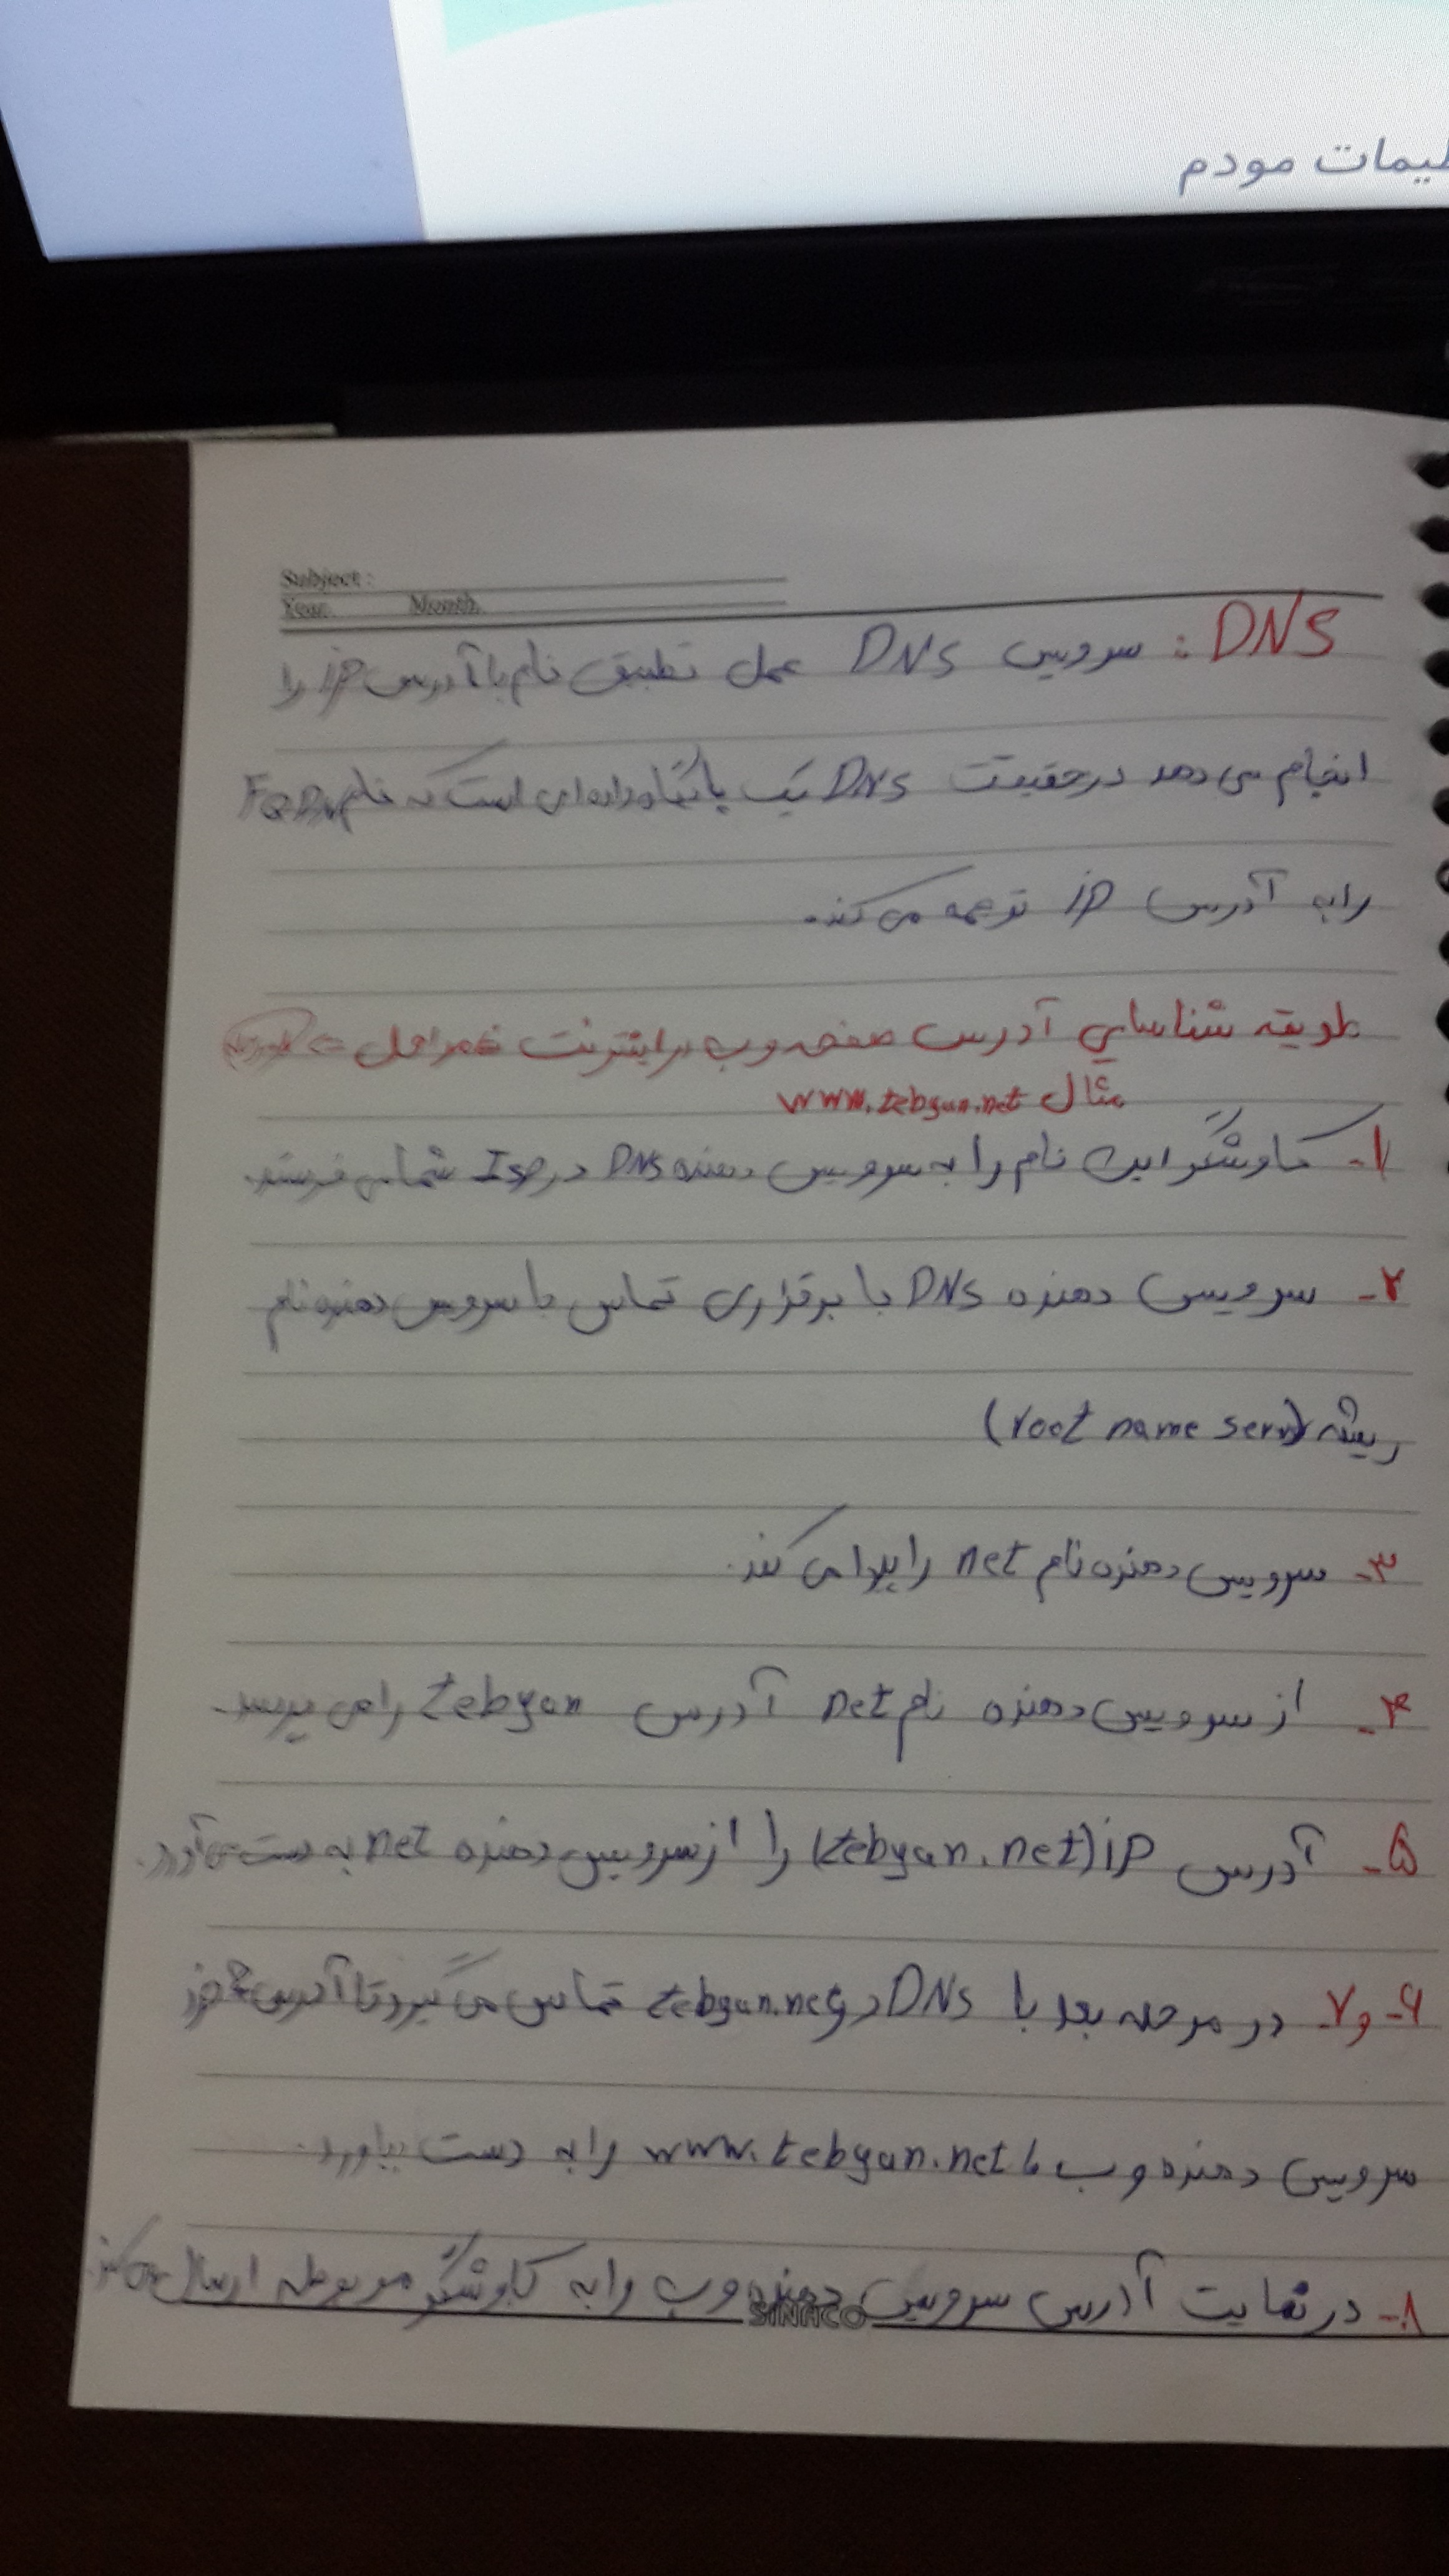 طیمات مودم
Subject:
Year. Month.
DNS: سرویس DNS عمل تطبیق نام با آدرس ip را
انجام می دهد در حقیقت DNS یک پایگاه داده ای است که نام FQDN
را به آدرس ip ترجمه می کند.
طریقه شناسایی آدرس صفحه وب در اینترنت
مثال www.tebyan.net
۱- کاوشگر این نام را به سرویس دهنده DNS در ISP شما می فرستد.
۲- سرویس دهنده DNS با برقراری تماس با سرویس دهنده نام
ریشه (root name serv)
۳- سرویس دهنده نام net را پیدا می کند.
۴- از سرویس دهنده نام net آدرس tebyan را می پرسد.
۵- آدرس ip (tebyan.net) را از سرویس دهنده net به دست می آورد.
۶- و ۷- در مرحله بعد با DNS در tebyan.net تماس می گیرد تا آدرس
سرویس دهنده وب با www.tebyan.net را به دست بیاورد.
۸- در نهایت آدرس سرویس دهنده وب را به کاوشگر مربوطه ارسال می کند
SINACO